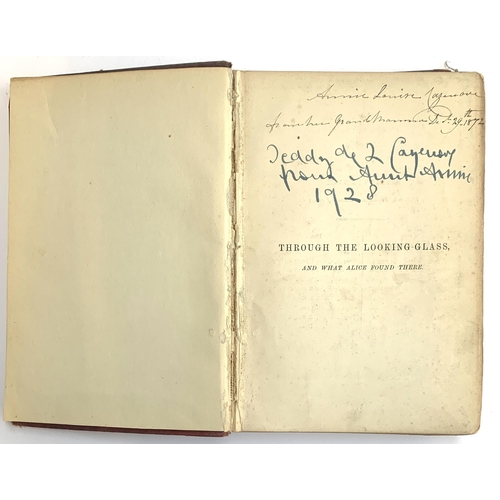 Annie Louise Cazenove
from her Grandmamma Dec. 29th 1872
Teddy de L Cazenove
from Aunt Annie
1928
THROUGH THE LOOKING-GLASS,
AND WHAT ALICE FOUND THERE.